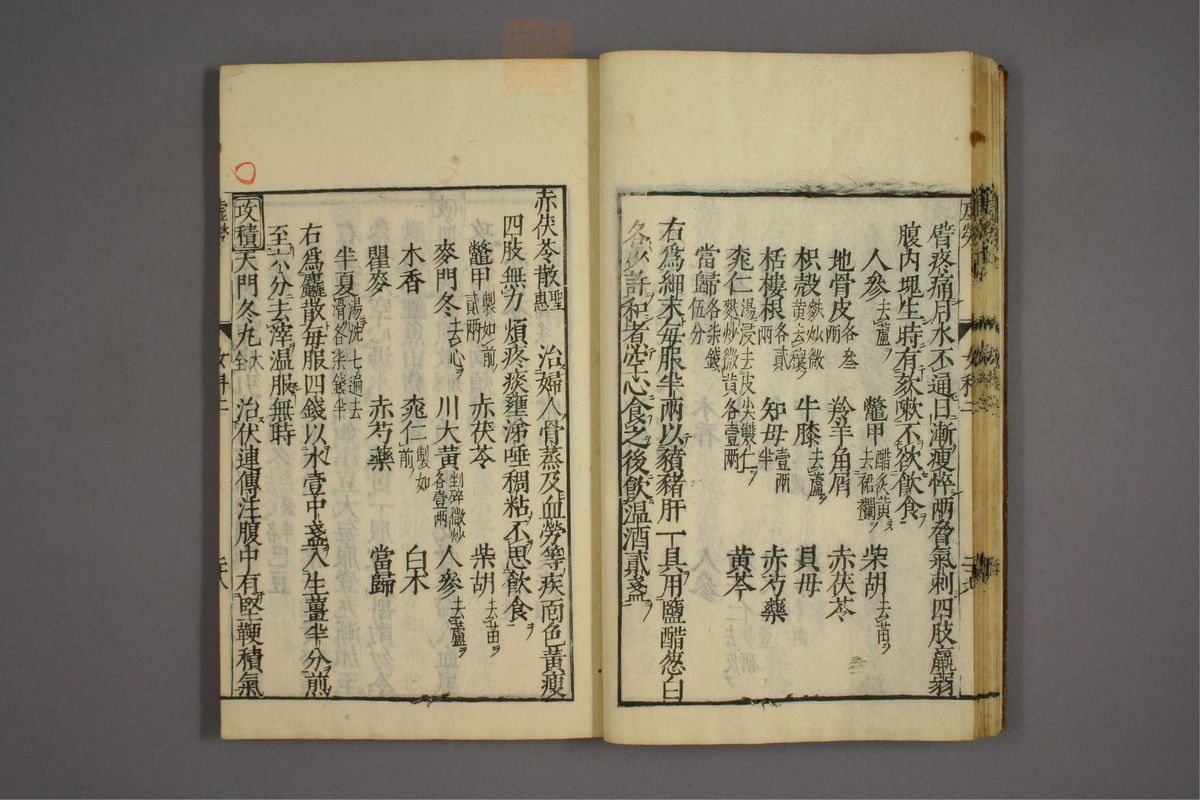 背疼痛月水不通日漸瘦悴兩脅氣刺四肢羸弱
腹内塊生時有欬嗽不欲飲食
人參去蘆 鱉甲醋炙黃去裙襴 柴胡去苗
地骨皮各叁兩 羚羊角屑 赤茯苓
枳殼麩炒微黃去穰 牛膝去蘆 貝母
栝樓根各貳兩 知母壹兩半 赤芍藥
桃仁湯浸去皮尖雙仁麩炒微黃各壹兩 黃芩
當歸各柒錢伍分
右爲細末每服半兩以豬肝一具用鹽醋葱白
各少許和煮空心食之後飲温酒貳盞
虛勞 女科二
赤茯苓散聖惠 治婦人骨蒸及血勞等疾面色黃瘦
四肢無力煩疼痰壅涕唾稠粘不思飲食
鱉甲製如前貳兩 赤茯苓 柴胡去苗
麥門冬去心 川大黃剉碎微炒各壹兩 人參去蘆
木香 桃仁製如前 白术
瞿麥 赤芍藥 當歸
半夏湯洗七遍去滑各柒錢半
右爲麤散每服四錢以水壹中盞入生薑半分煎
至六分去滓温服無時
攻積 天門冬丸大全 治伏連傳注腹中有堅鞕積氣
虛勞 女科二